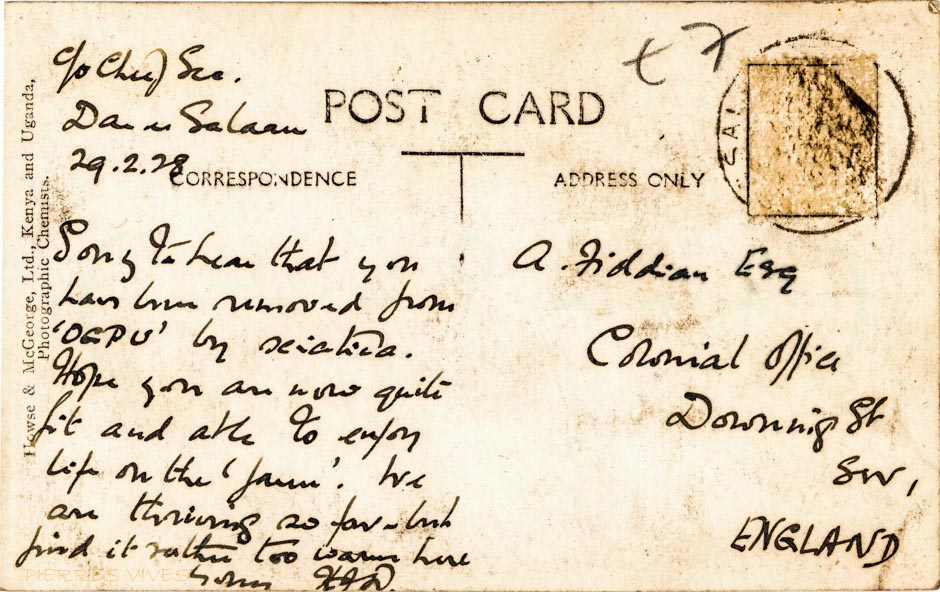 c/o Chief Sec.
Dar es Salaam
29.2.28
POST CARD
CORRESPONDENCE
ADDRESS ONLY
Howse & McGeorge, Ltd., Kenya and Uganda,
Photographic Chemists.
Sorry to hear that you
have been removed from
'OGPU' by sciatica.
Hope you are now quite
fit and able to enjoy
life on the '
We
are thriving so far but
find it rather too warm here
Yours
A. Fiddian Esq
Colonial Office
Downing St
SW,
ENGLAND
PIERRE S VIVES